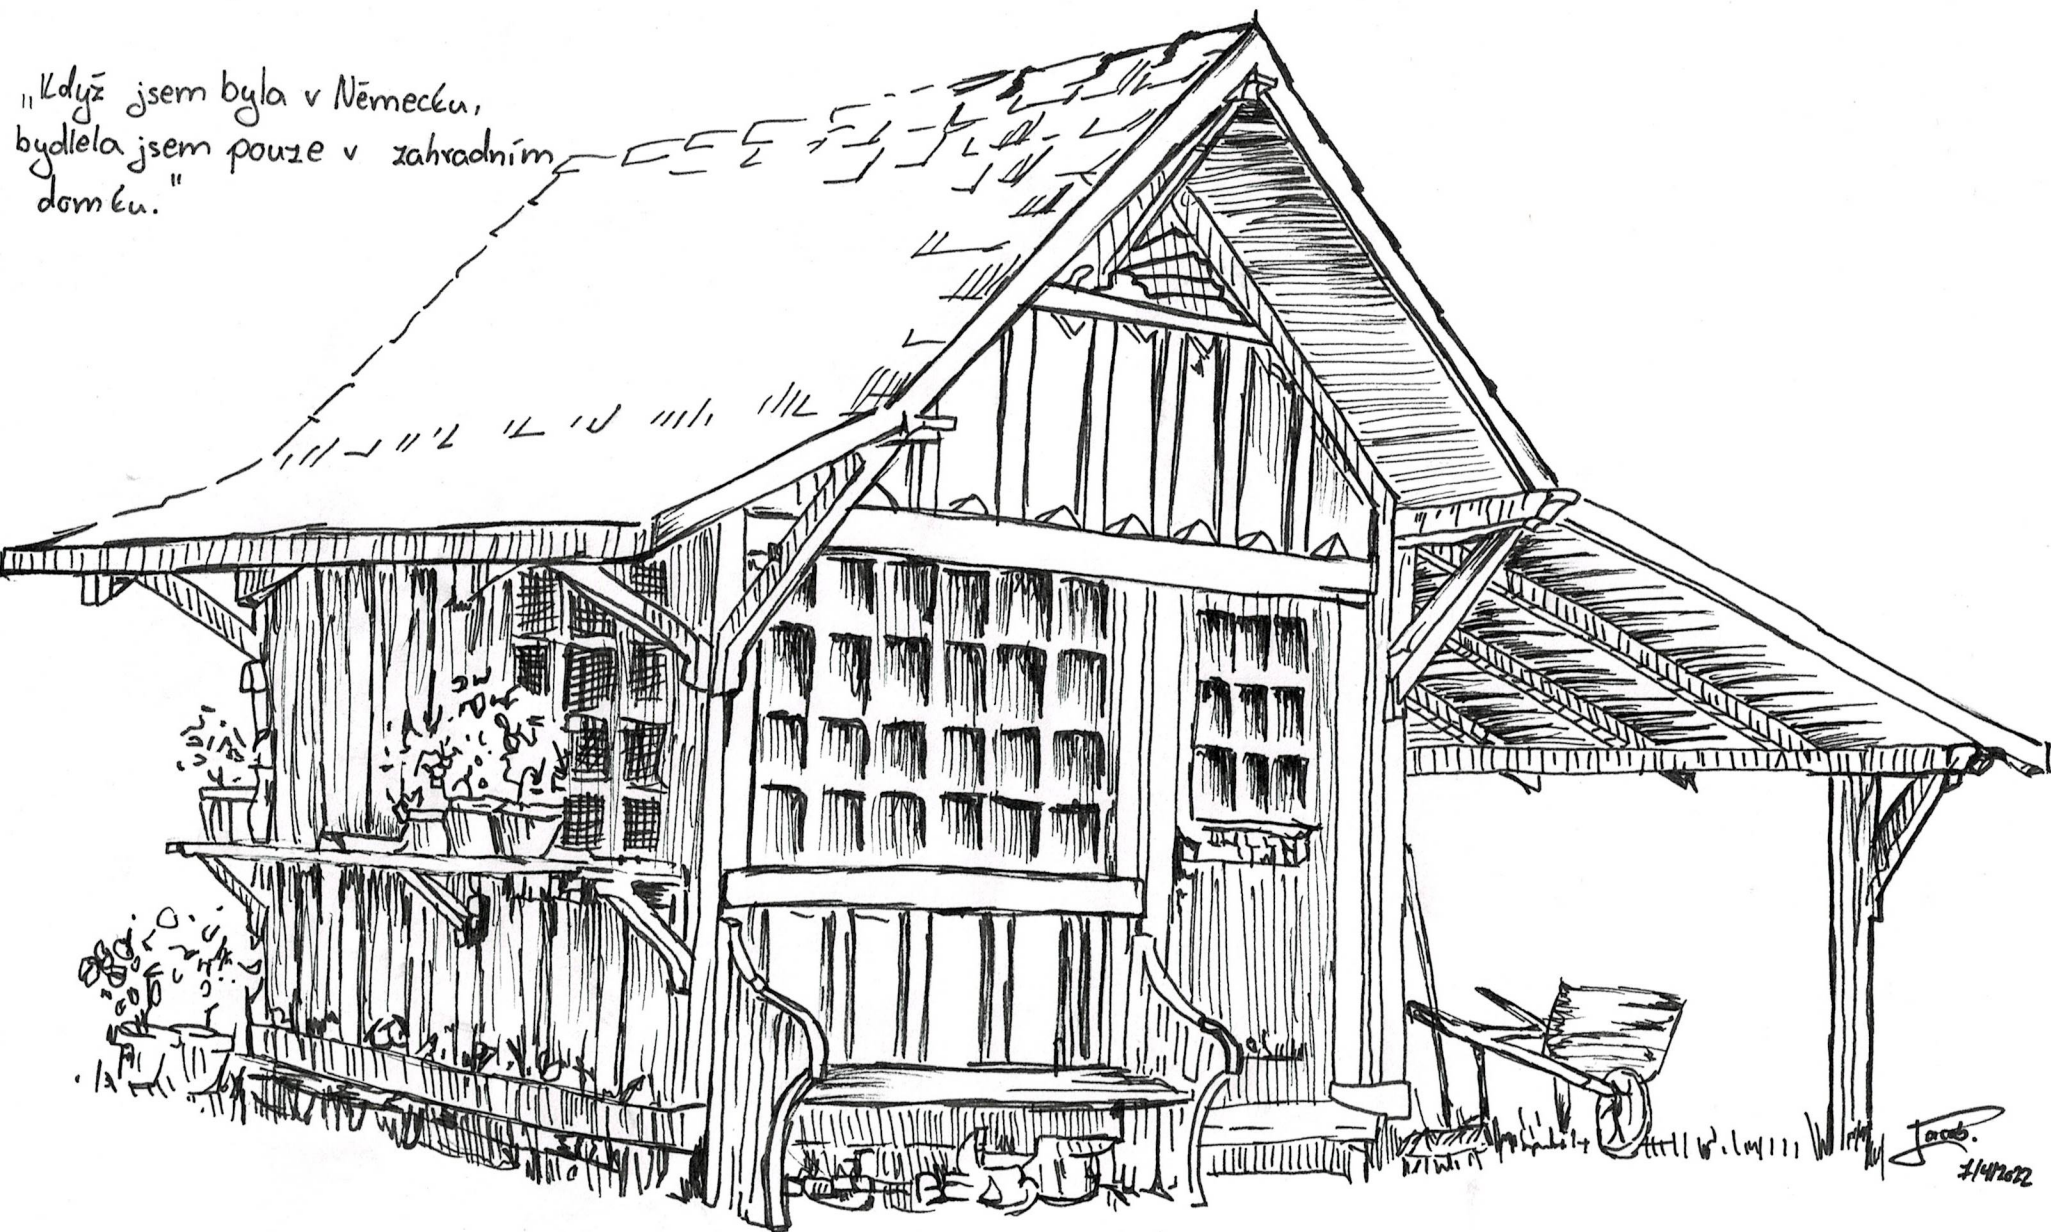 „Když jsem byla v Německu,
bydlela jsem pouze v zahradním
domku."
Jacob.
1/4/2022